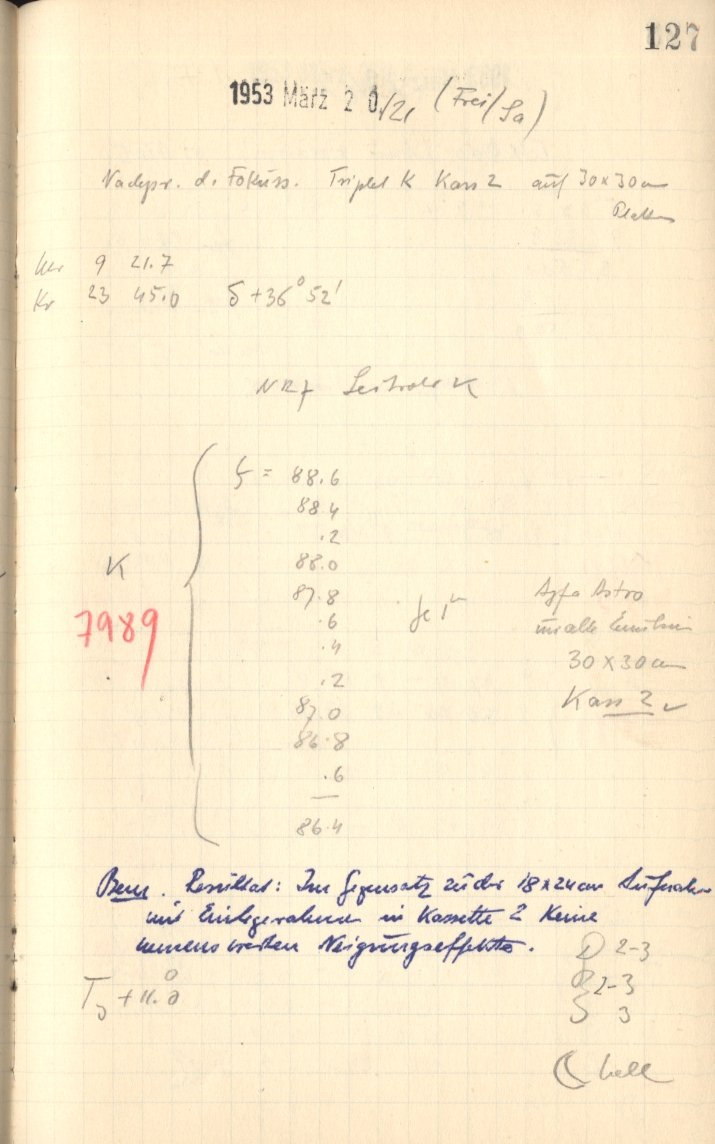 127
1953 März 20./21 (Frei/Sa)
Nachpr. d. Fokuss. Triplet K Kass 2 auf 30x30cm
Platten
Uhr 9 21.7
Kr 23 45.0 δ +36° 52'
K
ζ = 88.6
88.4
.2
88.0
87.8
.6
.4
.2
87.0
86.8
.6
86.4
7989
je 1ᵐ
Agfa Astro
uralte Emulsion
30x30cm
Kass 2
Bem. Resultat: Im Gegensatz zu der 18x24cm Aufnahme
mit Einlegerahmen in Kassette 2 Keine
nennenswerten Neigungseffekte.
2-3
2-3
3
T +11.0
hell